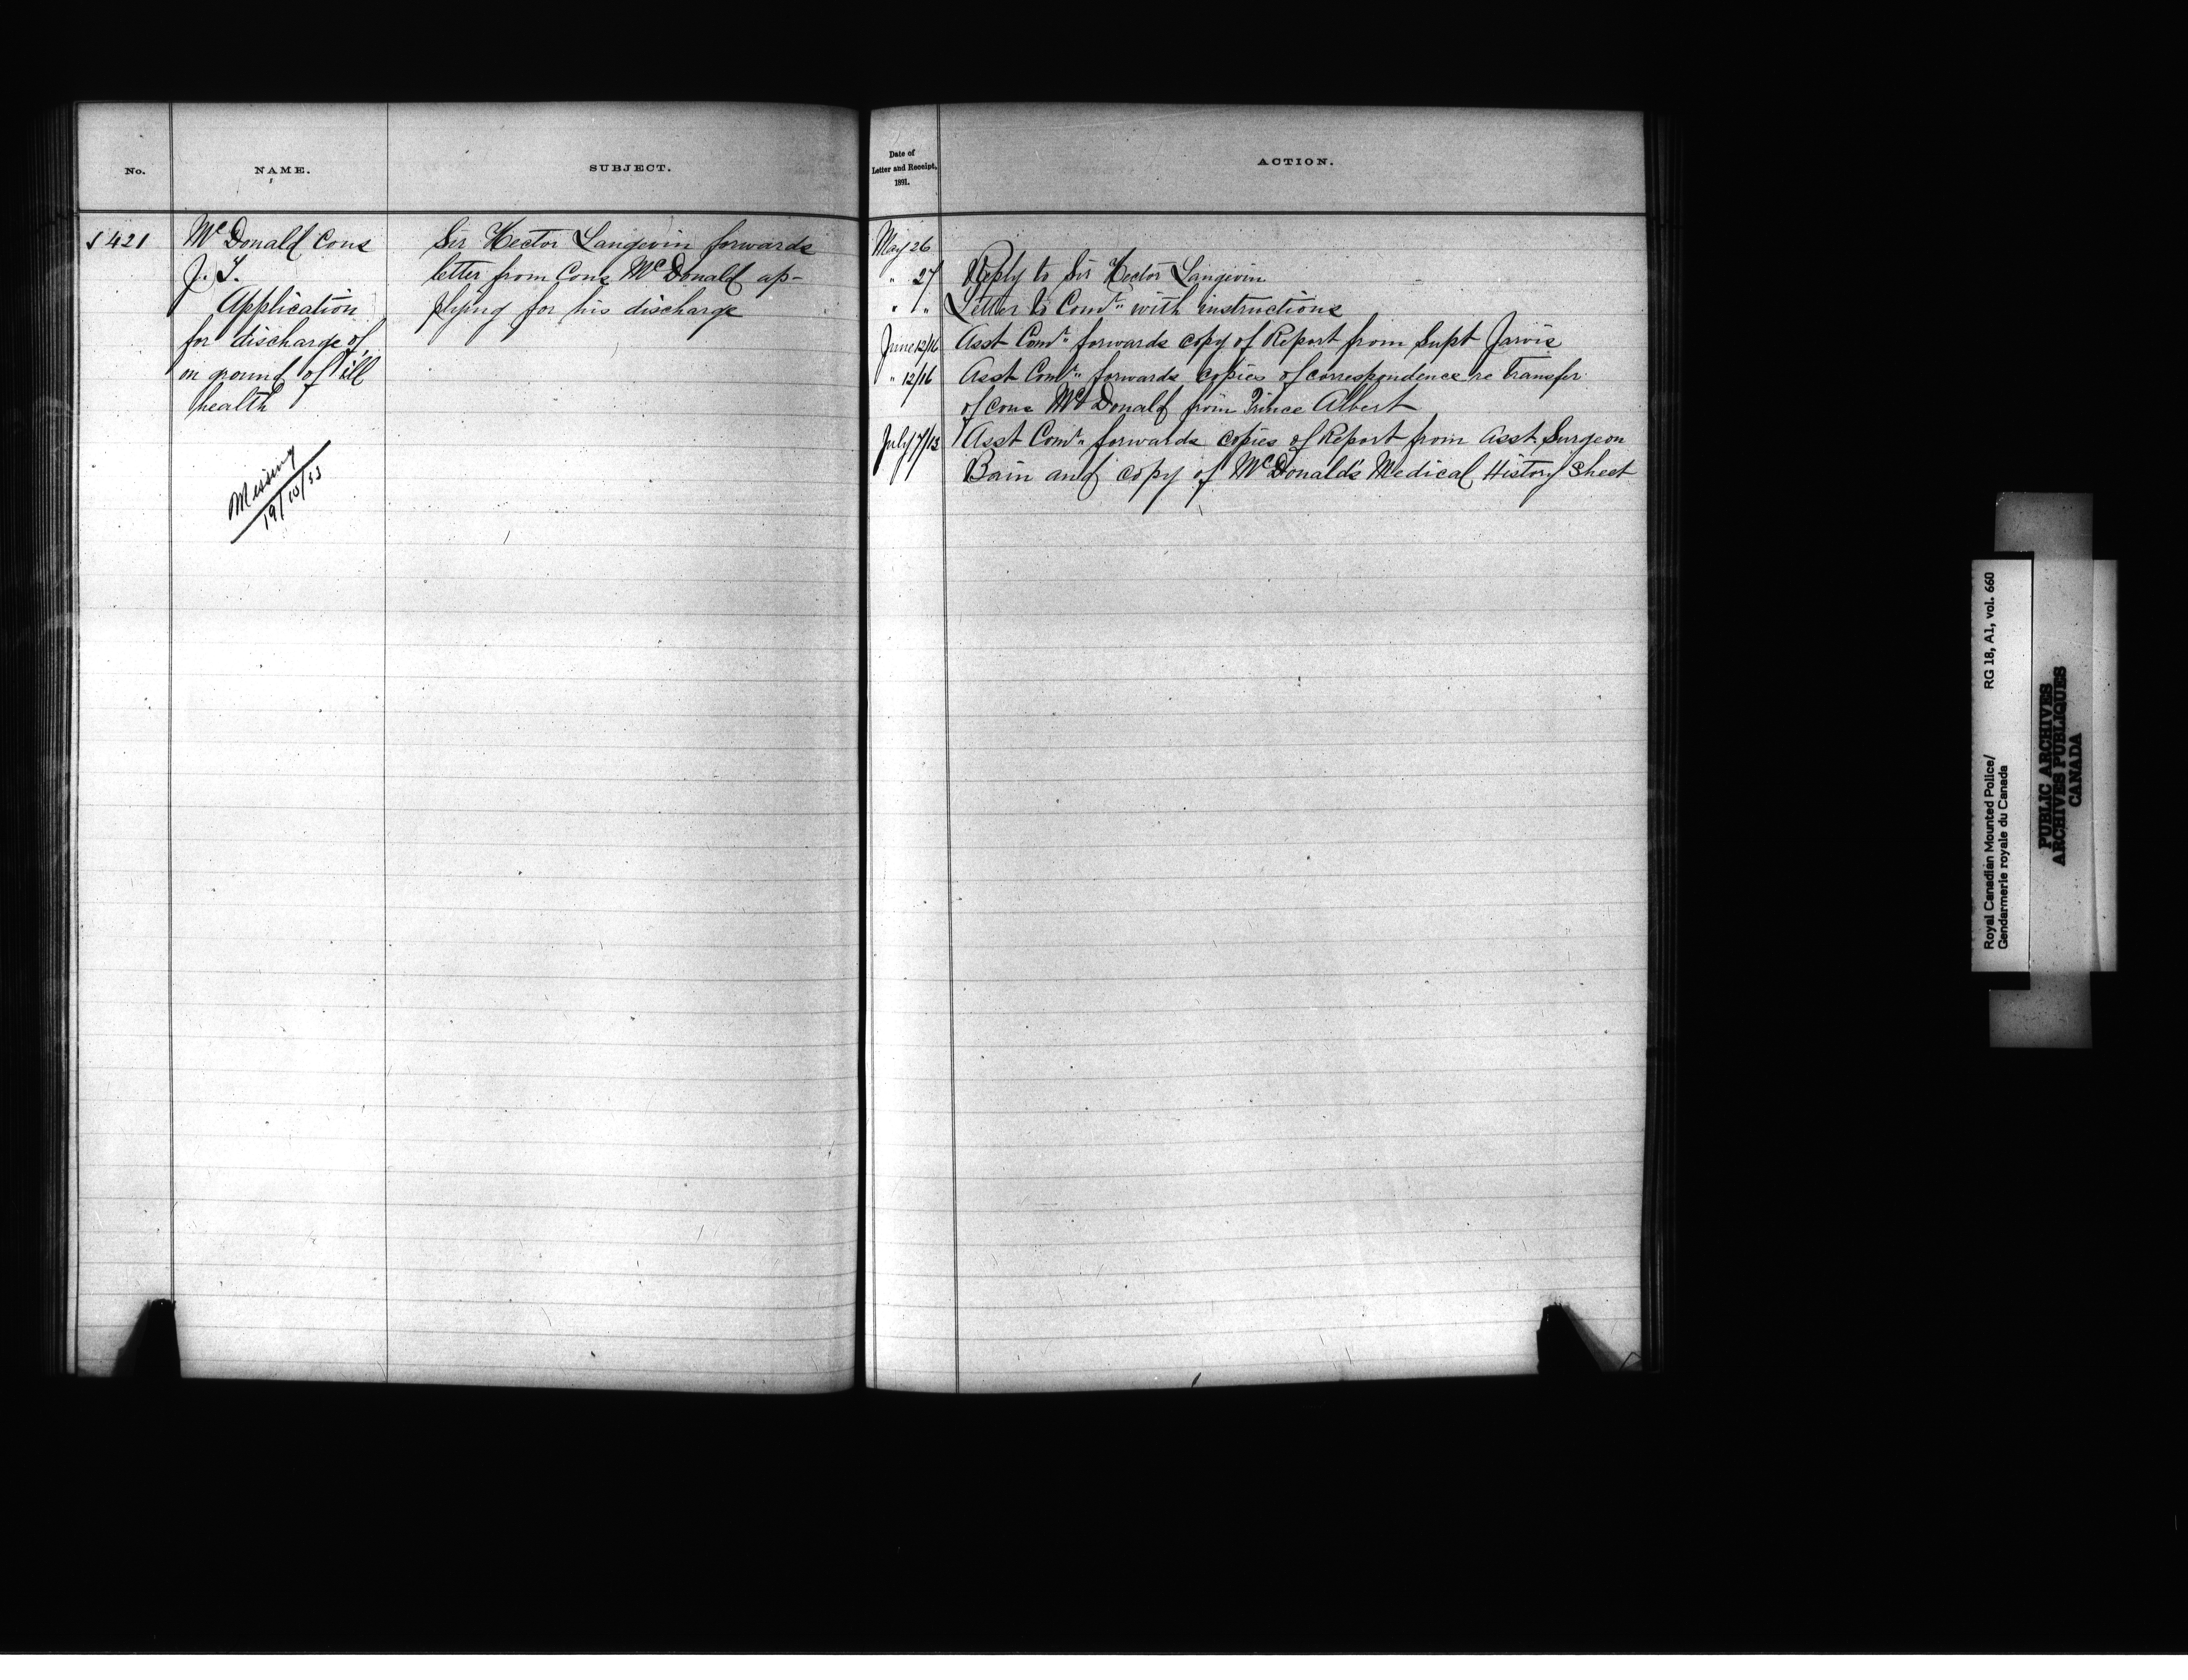 No.
NAME.
SUBJECT.
421
McDonald Cons
J.
Application
for discharge of,
on ground of ill
health
Missing
19/10/53
Sir Hector Langevin forwards
letter from Cons McDonald ap-
plying for his discharge
Date of
Letter and Receipt,
1891.
ACTION.
May 26
" 27 Reply to Sir Hector Langevin
" " Letter to Comr. with instructions
June 12/16 Asst Comr. forwards copy of Report from Supt Jarvis
" 12/16 Asst Comr. forwards copies of correspondence re Transfer
of Cons McDonald from Prince Albert
July 7/13 Asst Comr. forwards copies of Report from Asst. Surgeon
Bain and copy of McDonald's Medical History Sheet
Royal Canadian Mounted Police/ RG 18, A1, vol. 660
Gendarmerie royale du Canada
PUBLIC ARCHIVES
ARCHIVES PUBLIQUES
CANADA